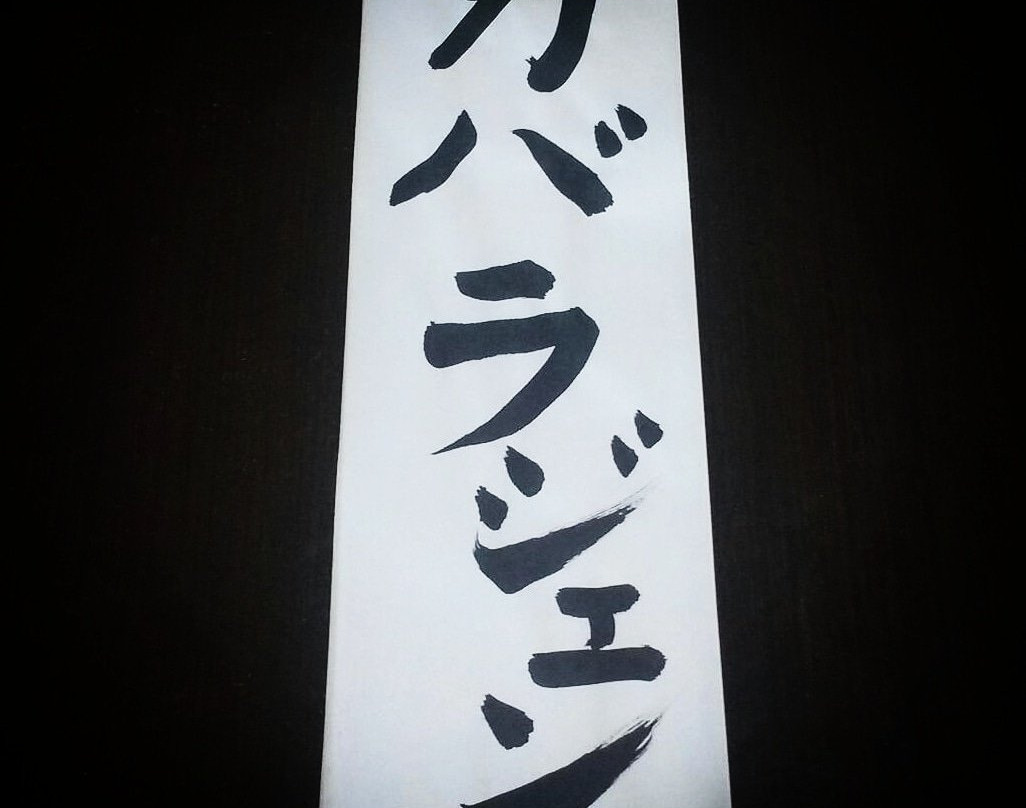 カバラジェン